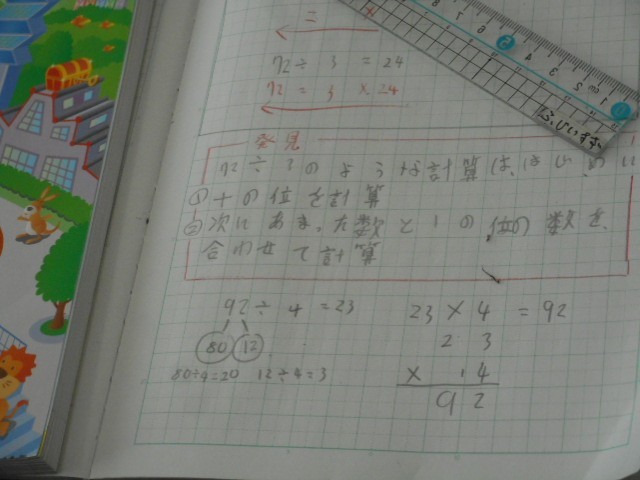 =
72÷3=24
72=3×24
発見
72÷3のような計算は、はじめに
①十の位を計算
②次にあまった数と1の位の数を、
合わせて計算
92÷4=23
80 12
80÷4=20 12÷4=3
23×4=92
23
× 4
92